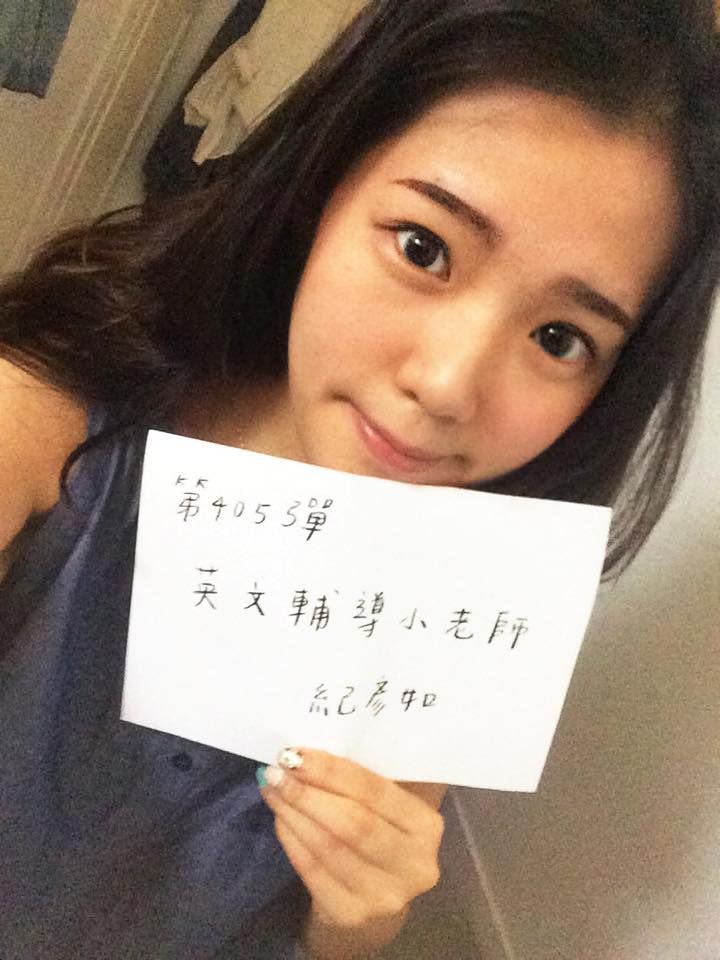 第4053彈
英文輔導小老師
紀彥如